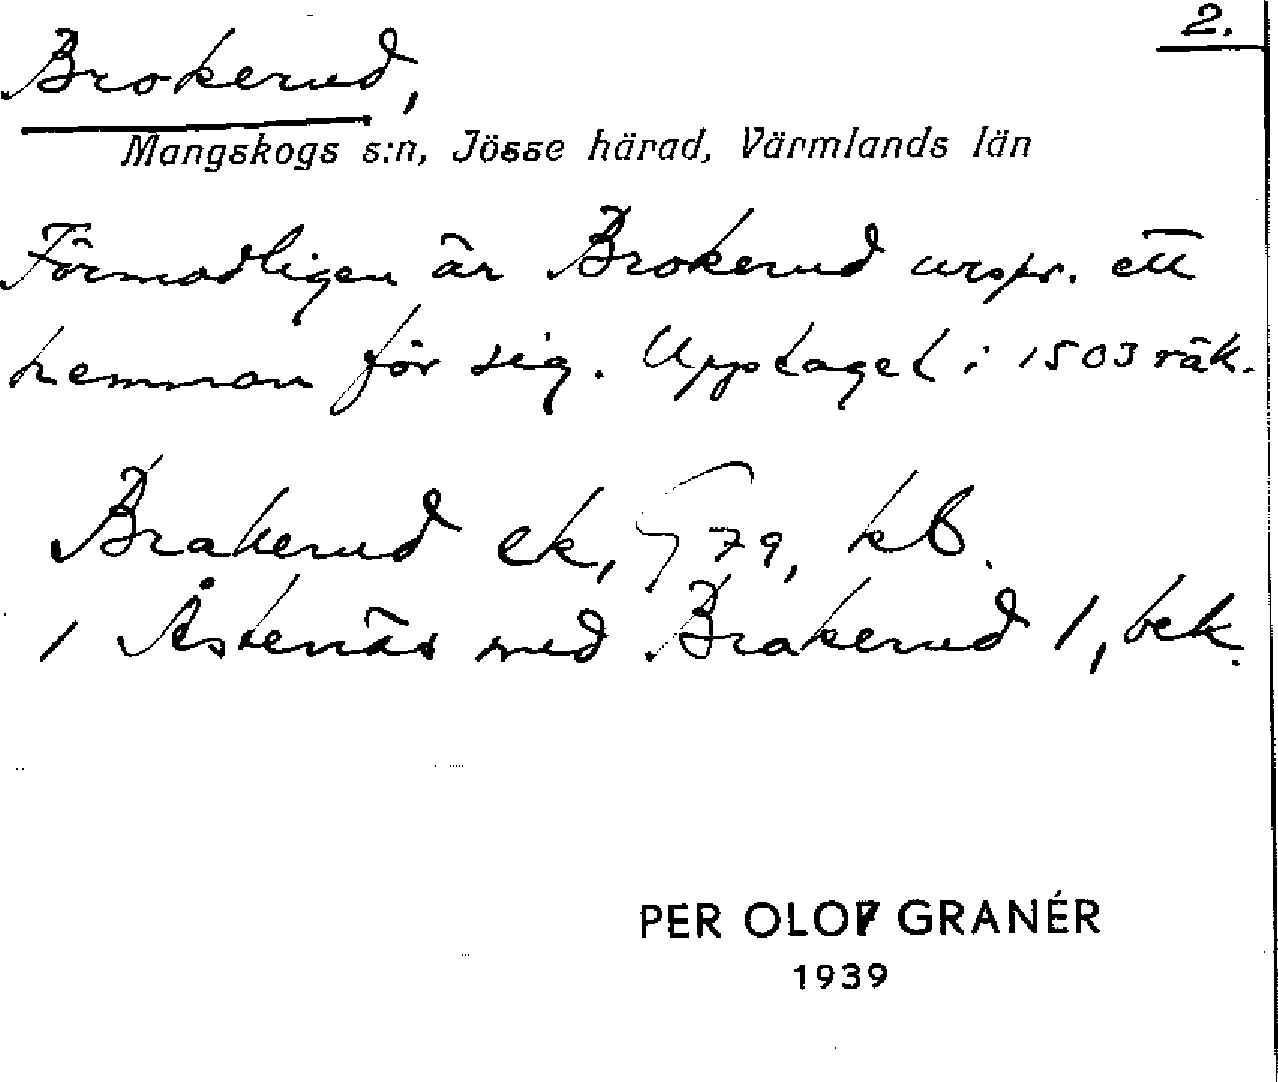 2.
Brokerud,
Mangskogs s:n, Jösse härad, Värmlands län
Förmodligen är Brokerud urspr. ett
hemman för sig. Upptaget i 1503 räk.
Brakerud ek, G 79, kb.
1 Åstenäs med Brakerud 1, bek.
PER OLOF GRANÉR
1939